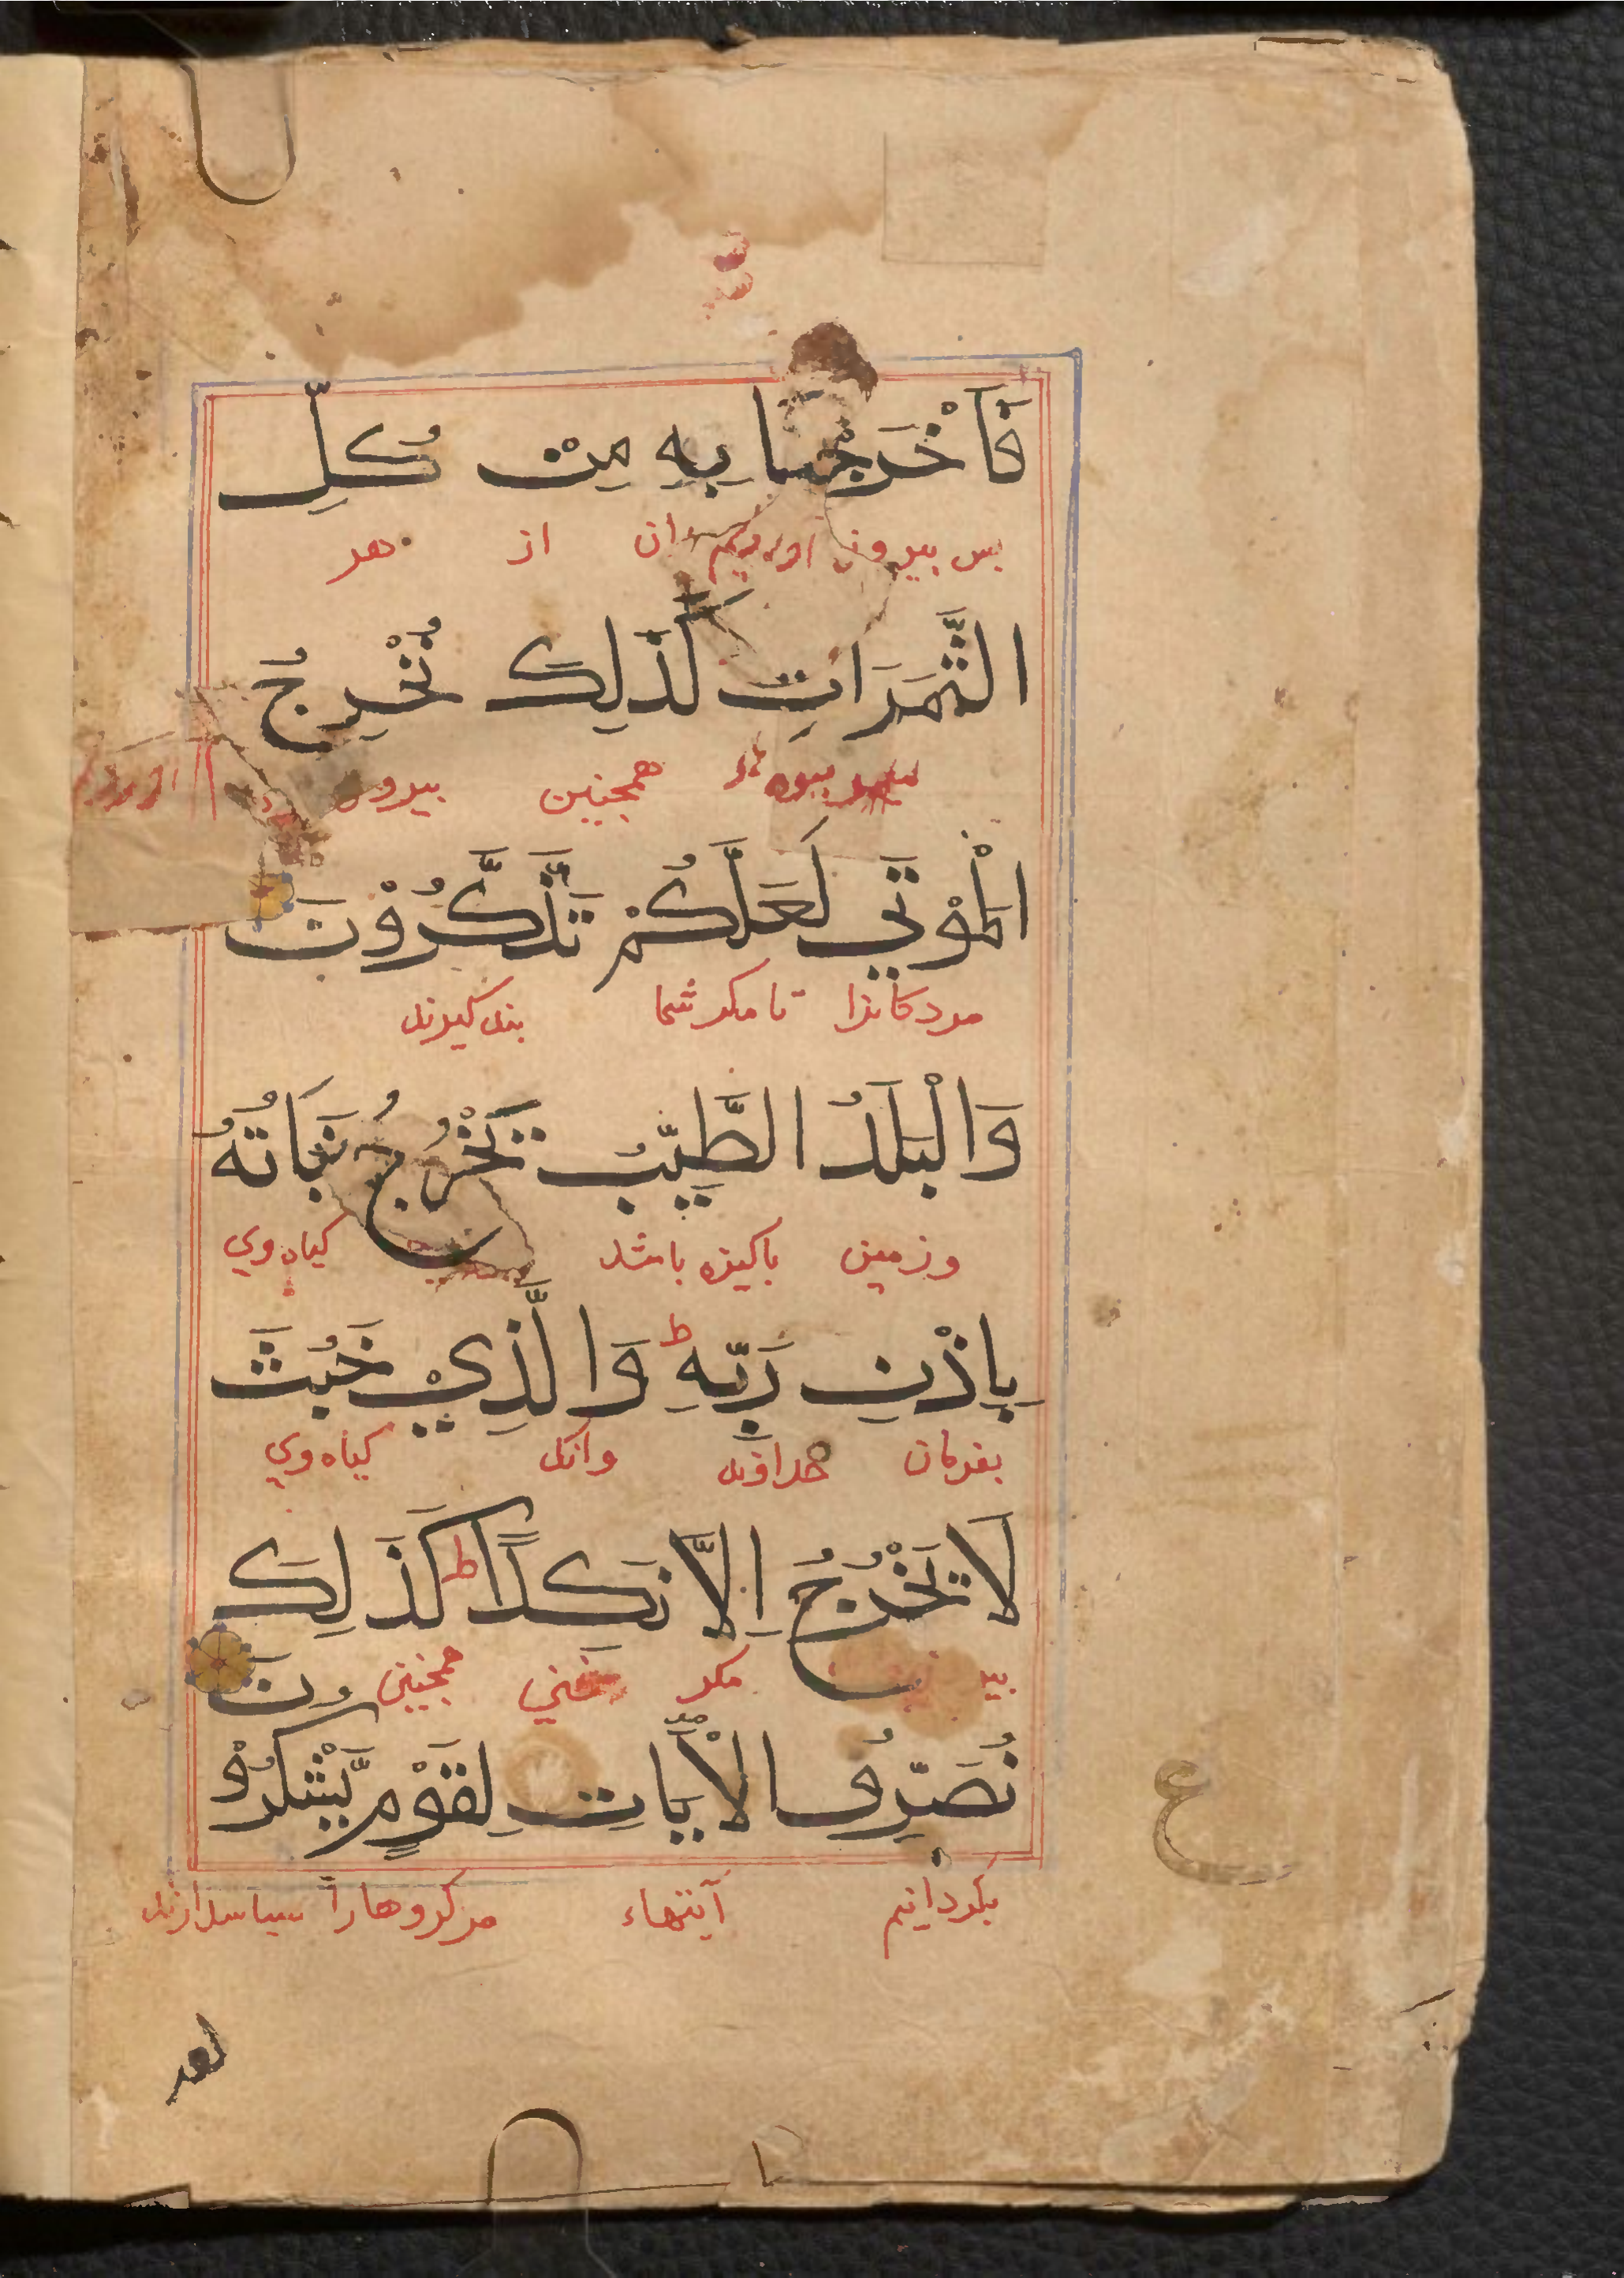 فَاَخْرَجْنَا بِهٖ مِنْ كُلِّ
بس بیرون اوریم بدان از هر
الثَّمَرَاتِ كَذٰلِكَ نُخْرِجُ
میوه‌ها همچنین بیرون اوریم
الْمَوْتٰي لَعَلَّكُمْ تَذَّكَّرُوْنَ
مردکانرا تا مکر شما بند کیرند
وَالْبَلَدُ الطَّيِّبُ يَخْرُجُ نَبَاتُهُ
وزمین باکیزه باشد کیاه وي
بِاِذْنِ رَبِّهٖ ط وَالَّذِيْ خَبُثَ
بفرمان خداوند وانک کیاه وي
لَا يَخْرُجُ اِلَّا نَكِدًا ط كَذٰلِكَ
مکر همچنین
نُصَرِّفُ الْاٰيَاتِ لِقَوْمٍ يَّشْكُرُوْنَ
بکردانیم آیتهاء مر کروهارا سباسدارند
ع
لقد